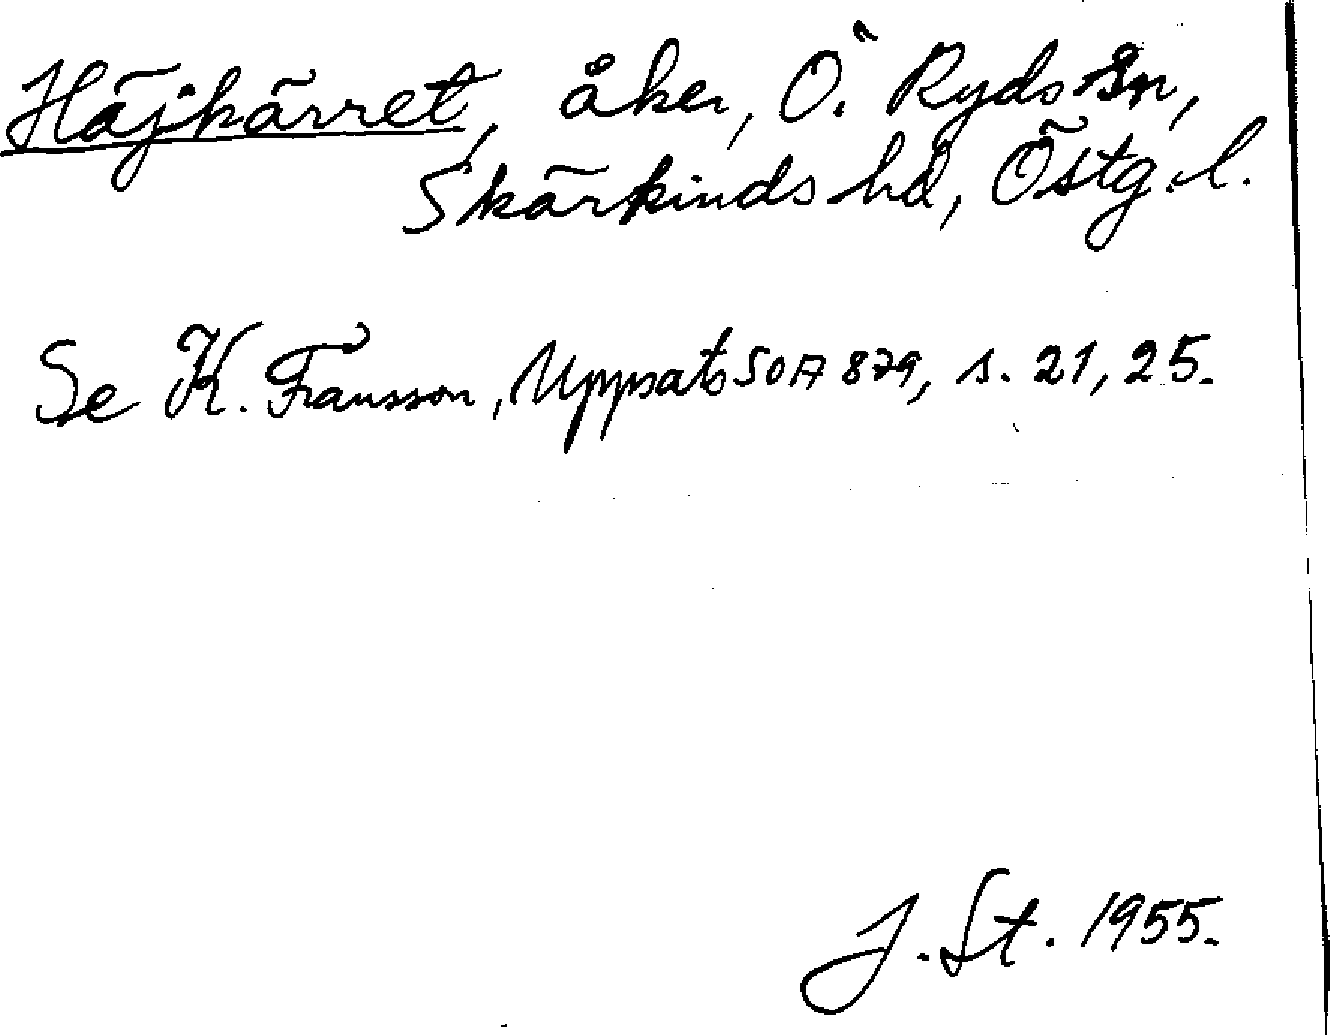 Häjkärret, åker, Ö. Ryds sn,
Skärkinds hd, Östg. l.
Se K. Fransson, Uppsats SOA 879, s. 21, 25.
J. St. 1955.